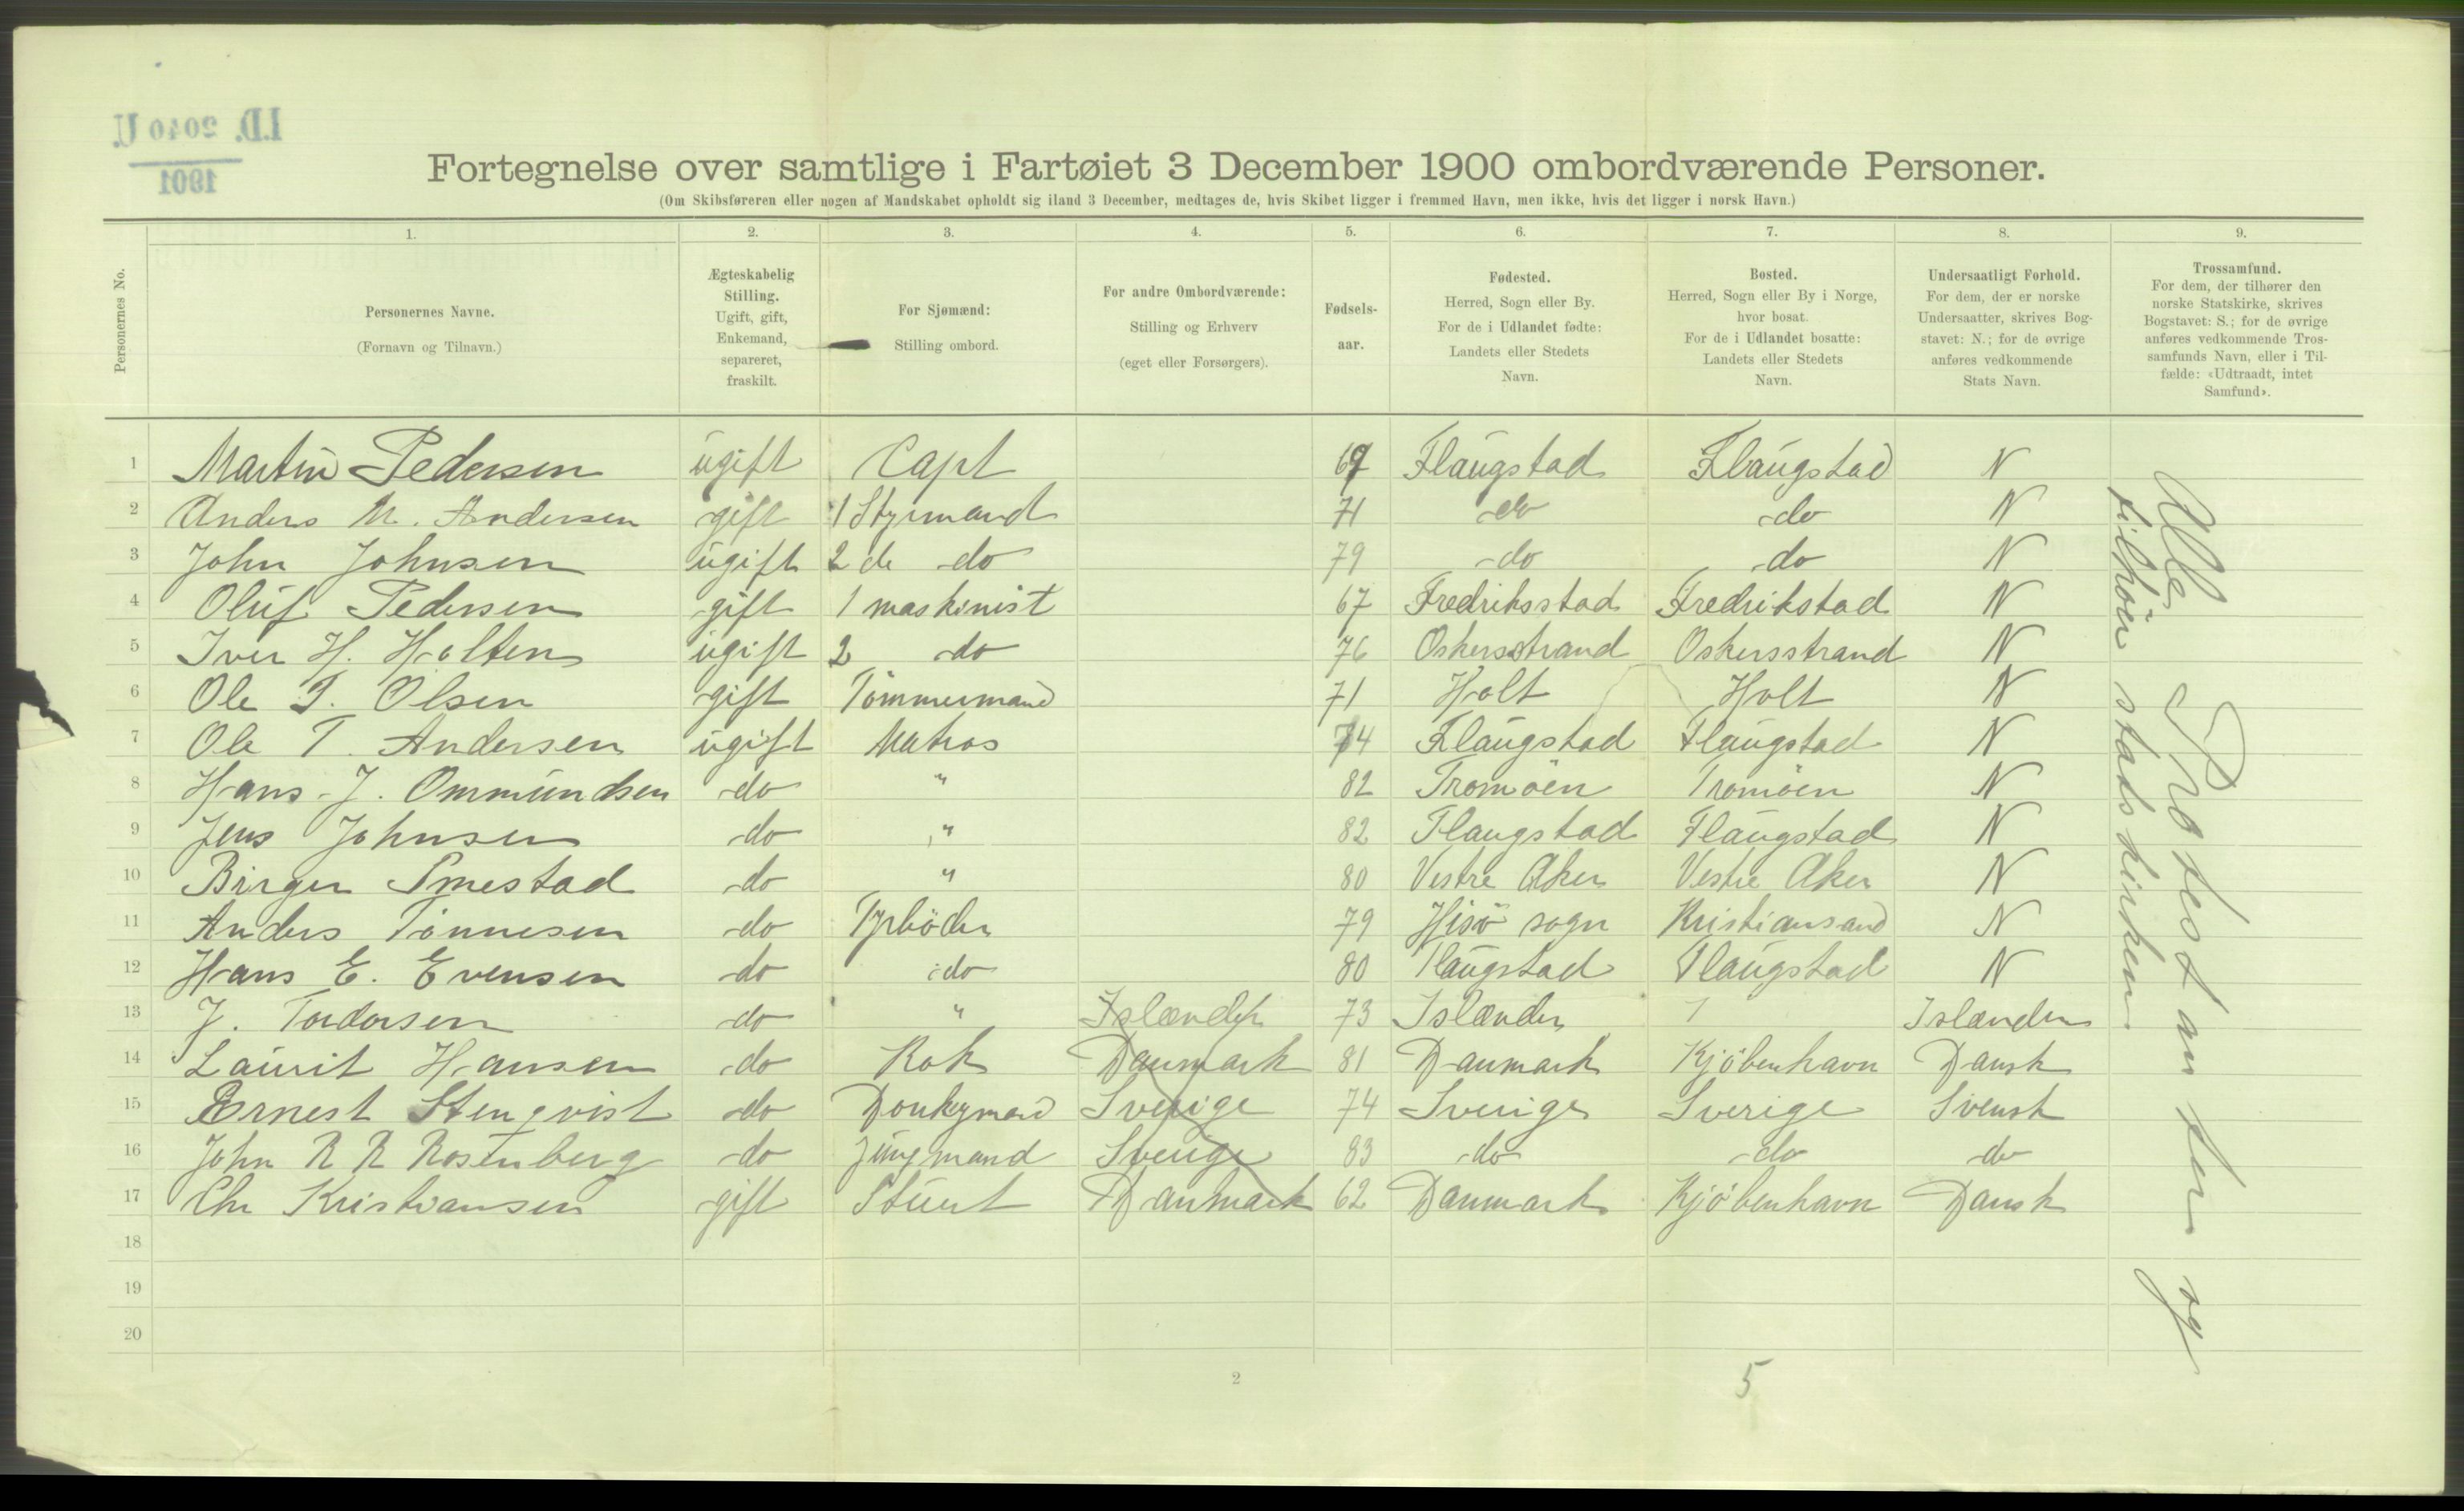 I.D. 2040 U.
1901
Fortegnelse over samtlige i Fartøiet 3 December 1900 ombordværende Personer.
(Om Skibsføreren eller nogen af Mandskabet opholdt sig iland 3 December, medtages de, hvis Skibet ligger i fremmed Havn, men ikke, hvis det ligger i norsk Havn.)
Personernes No.
1. 2. 3. 4. 5. 6. 7. 8. 9.
Personernes Navne.
(Fornavn og Tilnavn.)
Ægteskabelig
Stilling.
Ugift, gift,
Enkemand,
separeret,
fraskilt.
For Sjømænd:
Stilling ombord.
For andre Ombordværende:
Stilling og Erhverv
(eget eller Forsørgers).
Fødsels-
aar.
Fødested.
Herred, Sogn eller By.
For de i Udlandet fødte:
Landets eller Stedets
Navn.
Bosted.
Herred, Sogn eller By i Norge,
hvor bosat.
For de i Udlandet bosatte:
Landets eller Stedets
Navn.
Undersaatligt Forhold.
For dem, der er norske
Undersaatter, skrives Bog-
stavet: N.; for de øvrige
anføres vedkommende
Stats Navn.
Trossamfund.
For dem, der tilhører den
norske Statskirke, skrives
Bogstavet: S.; for de øvrige
anføres vedkommende Tros-
samfunds Navn, eller i Til-
fælde: «Udtraadt, intet
Samfund».
1 Martin Pedersen ugift Capt Flaugstad Flaugstad N
2 Anders M. Andersen gift 1 Styrmand 71 do do N
3 John Johnsen ugift 2 de do 79 do do N
4 Oluf Pedersen gift 1 maskinist 67 Fredriksstad Fredrikstad N
5 Iver H. Holten ugift 2 do 76 Oskersstrand Oskersstrand N
6 Ole T. Olsen gift Tömmermand 71 Holt Holt N
7 Ole T. Andersen ugift Matros 74 Flaugstad Flaugstad N
8 Hans J. Ommundsen do " 82 Tromöen Tromöen N
9 Jens Johnsen do " 82 Flaugstad Flaugstad N
10 Birger Smestad do " 80 Vestre Aker Vestre Aker N
11 Anders Tönnesen do Fyrböder 79 Hisö sogn Kristiansand N
12 Hans E. Evensen do do 80 Flaugstad Flaugstad N
13 J. Tordorsen do " Islænder 73 Islænder Islænder
14 Laurit Hansen do Kok Danmark 81 Danmark Kjöbenhavn Dansk
15 Ernest Stenqvist do Donkeymand Sverige 74 Sverige Sverige Svensk
16 John R R Rosenberg do Jungmand Sverige 83 do do do
17 Chr Kristiansen gift Stuert Danmark 62 Danmark Kjöbenhavn Dansk
18
19
20
Alle Protestanter og
tilhöer stadskirken
2
5